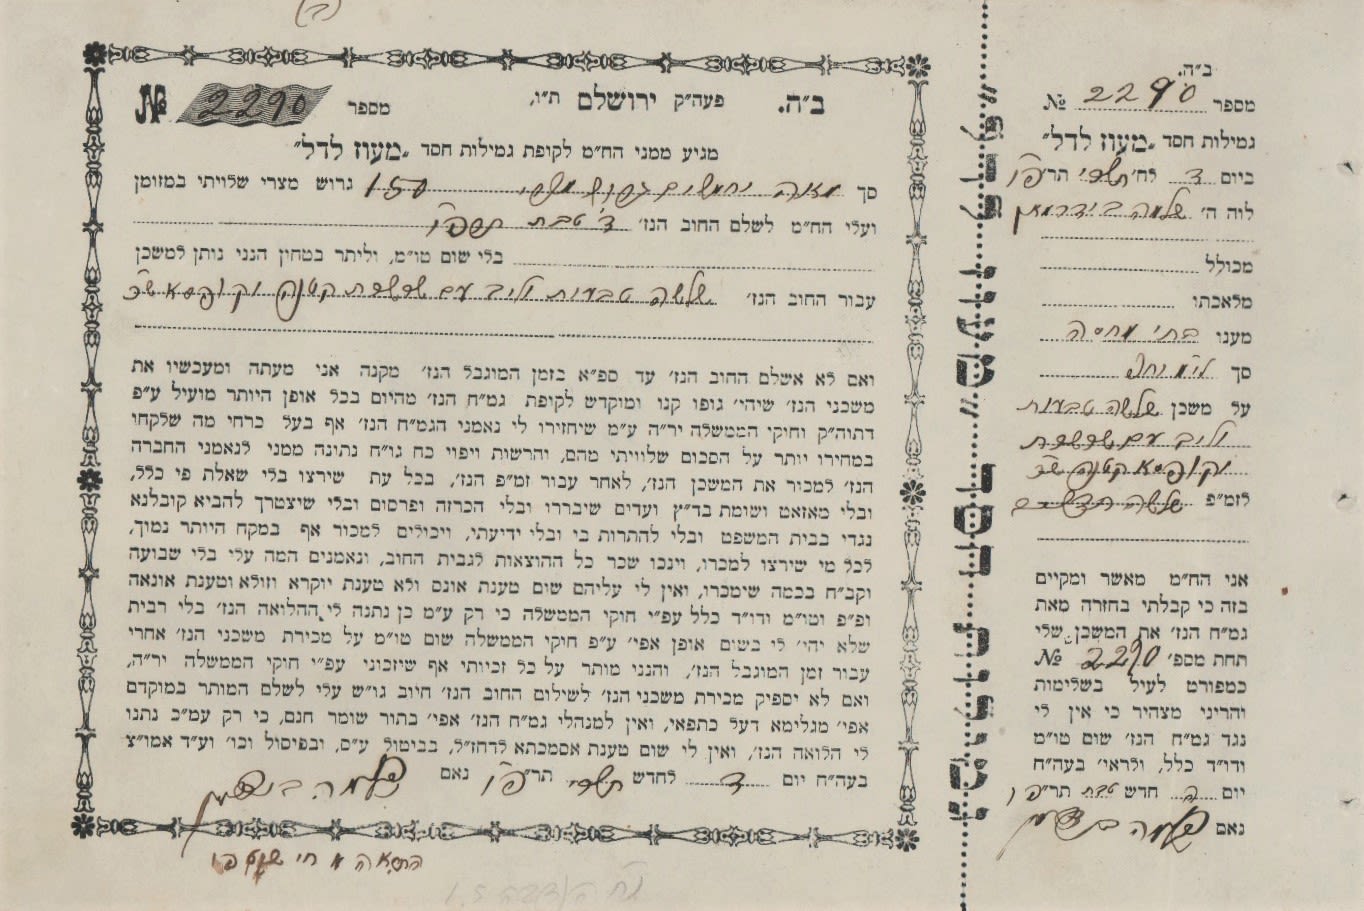 ב״ה. פעה״ק ירושלם ת״ו, מספר 2290 №
מגיע ממני הח״מ לקופת גמילות חסד „מעוז לדל״
סך מאה וחמשים גרוש מצרי 150 גרוש מצרי שלויתי במזומן
ועלי הח״מ לשלם החוב הנז׳ ד׳ טבת תרפ״ו
בלי שום טו״מ, וליתר בטחון הנני נותן למשכן
עבור החוב הנז׳ שלשה טבעות וליב עם שרשרת קטנה וקופסא
ואם לא אשלם החוב הנז׳ עד ספ״א בזמן המוגבל הנז׳ מקנה אני מעתה ומעכשיו את
משכני הנז׳ שיהי׳ גופו קנו ומוקדש לקופת גמ״ח הנז׳ מהיום בכל אופן היותר מועיל ע״פ
דתוה״ק וחוקי הממשלה יר״ה ע״מ שיחזירו לי נאמני הגמ״ח הנז׳ אף בעל כרחי מה שלקחו
במחירו יותר על הסכום שלוויתי מהם, והרשות ויפוי כח גו״ח נתונה ממני לנאמני החברה
הנז׳ למכור את המשכן הנז׳, לאחר עבור זמ״פ הנז׳, בכל עת שירצו בלי שאלת פי כלל,
ובלי מאזאט ושומת בד״ץ ועדים שיבררו ובלי הכרזה ופרסום ובלי שיצטרך להביא קובלנא
נגדי בבית המשפט ובלי להתרות בי ובלי ידיעתי, ויכולים למכור אף במקח היותר נמוך,
לכל מי שירצו למכרו, וינכו שכר כל ההוצאות לגבית החוב, ונאמנים המה עלי בלי שבועה
וקב״ח בכמה שימכרו, ואין לי עליהם שום טענת אונס ולא טענת יוקרא וזולא וטענת אונאה
ופ״פ וטו״מ ודו״ד כלל עפ״י חוקי הממשלה כי רק ע״מ כן נתנה לי ההלואה הנז׳ בלי רבית
שלא יהי׳ לי בשום אופן אפי׳ ע״פ חוקי הממשלה שום טו״מ על מכירת משכני הנז׳ אחרי
עבור זמן המוגבל הנז׳, והנני מותר על כל זכיותי אף שיזכוני עפ״י חוקי הממשלה יר״ה,
ואם לא יספיק מכירת משכני הנז׳ לשילום החוב הנז׳ חיוב גו״ש עלי לשלם המותר במוקדם
אפי׳ מגלימא דעל כתפאי, ואין למנהלי גמ״ח הנז׳ אפי׳ בתור שומר חנם, כי רק עמ״כ נתנו
לי הלואה הנז׳, ואין לי שום טענת אסמכתא לדחז״ל, בביטול ע״ס, ובפיסול וכו׳ וע״ד אמו״צ
בעה״ח יום ד לחדש תשרי תר״פו נאם שלמה בידרמן
ב״ה.
מספר 2290 №
גמילות חסד „מעוז לדל״
ביום ד לח׳ תשרי תר״פו
לוה ה׳ שלמה בידרמאן
מכולל
מלאכתו
מענו בתי מחסה
סך
על משכן שלשה טבעות
וליב עם שרשרת
וקופסא קטנה
לזמ״פ שלשה חדשים
אני הח״מ מאשר ומקיים
בזה כי קבלתי בחזרה מאת
גמ״ח הנז׳ את המשכן שלי
תחת מספ׳ 2290 №
כמפורט לעיל בשלימות
והריני מצהיר כי אין לי
נגד גמ״ח הנז׳ שום טו״מ
ודו״ד כלל, ולראי׳ בעה״ח
יום ה חדש טבת תר״פו
נאם שלמה בידרמן